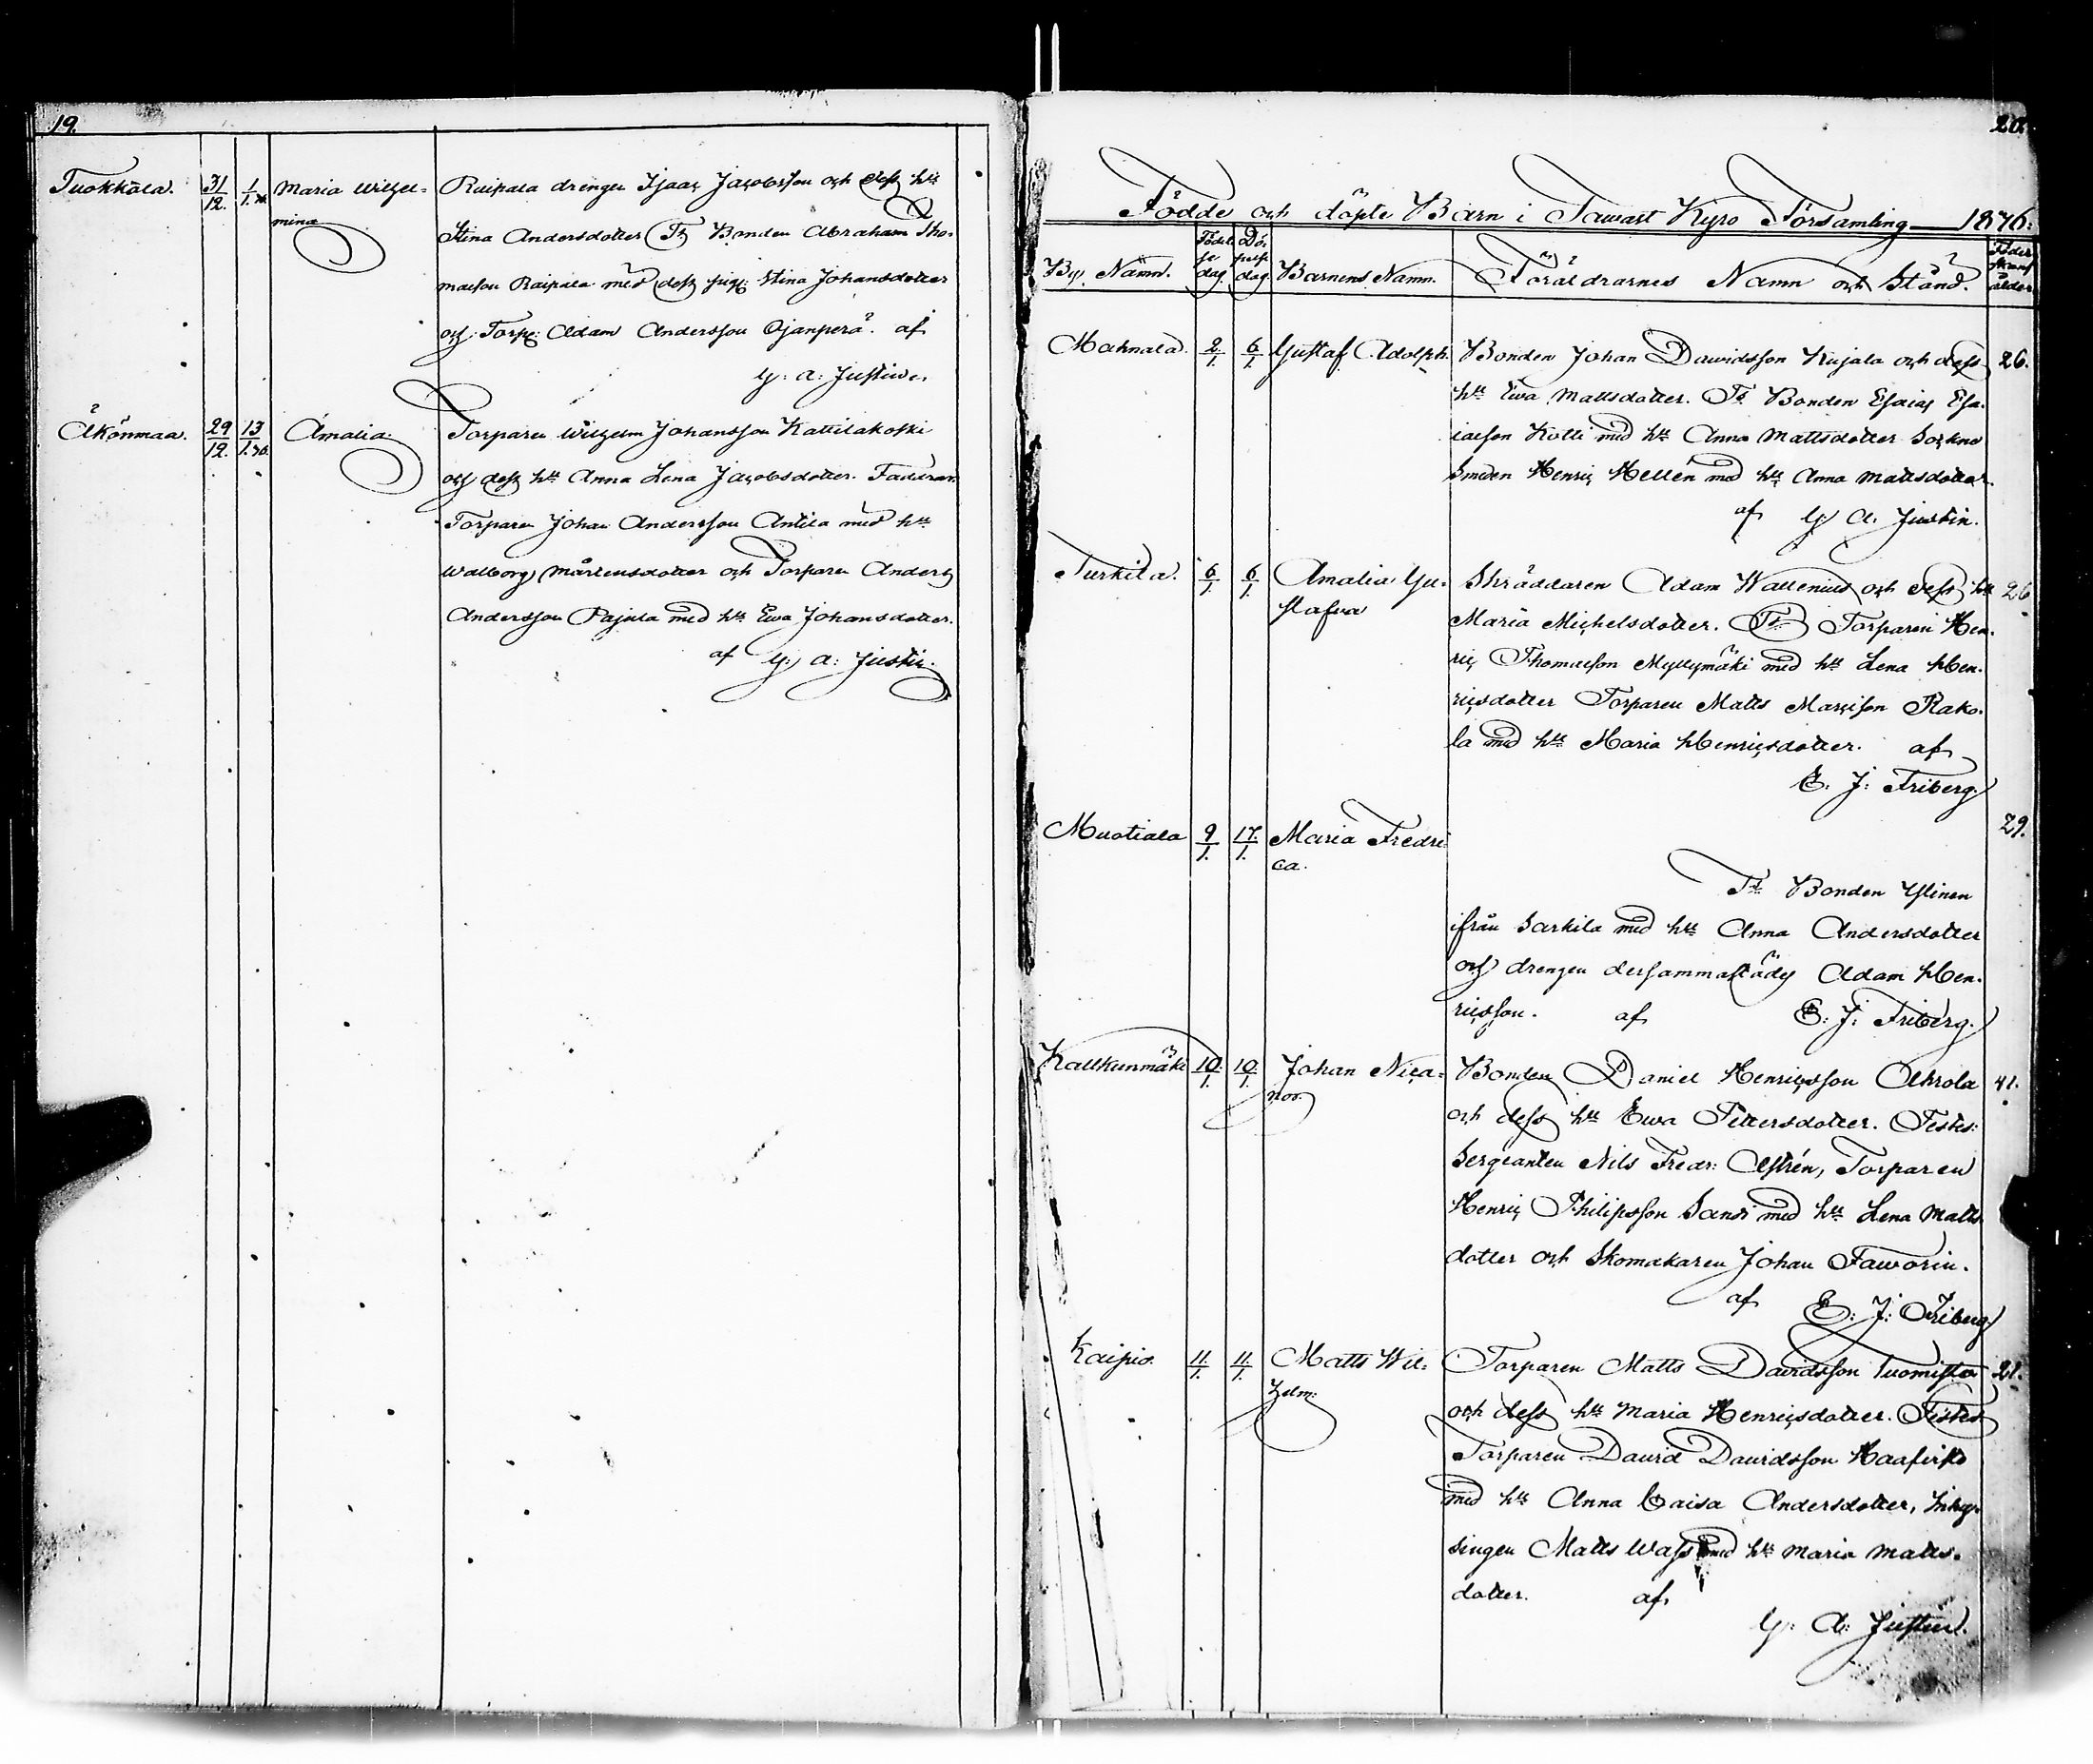 19.
Tuokkola. 31/12. 1/1.76. Maria Wilhel-
mina
Raipala drengen Isaac Jacobsson och dess hu
Stina Andersdotter Ts Bonden Abraham Tho-
maeson Raipala med dess pig: Stina Johansdotter
och Torp: Adam Andersson Ojanperä. af
G: A: Justin.
Åkönmaa. 29/12. 13/1.76. Amalia
Torparen Wilhelm Johansson Kattilakoski
och dess hu Anna Lena Jacobsdotter. Faddrar
Torparen Johan Andersson Antila med hu
Walborg Mårtensdotter och Torparen Anders
Andersson Pajula med hu Ewa Johansdotter.
af G: A: Justin.
20.
Födde och döpte Barn i Tawast Kyro Församling 1876:
By. Namn. Födel-se dag. Dö-pelse dag. Barnens Namn. Föräldrarnes Namn och Stånd. ålder
Mahnala. 2/1. 6/1. Gustaf Adolph. Bonden Johan Dawidsson Kujala och dess 26.
hu Ewa Mattsdotter. Ts Bonden Esaias Esa-
iaeson Kolli med hu Anna Mattsdotter Sockne
Smeden Henric Hellén med hu Anna Mattsdotter.
af G: A: Justin.
Turkila. 6/1. 6/1. Amalia Gu-
stafva
Skräddaren Adam Wallenius och dess hu 26
Maria Michelsdotter. Ts Torparen Hen-
ric Thomaeson Myllymäki med hu Lena Hen-
ricsdotter Torparen Matts Marcison Rako-
la med hu Maria Henricsdotter. af
E: J: Friberg.
Muotiala 9/1. 17/1. Maria Fredri-
ca.
29.
Ts Bonden Ylinen
ifrån Sarkila med hu Anna Andersdotter
och drengen dersammastädes Adam Hen-
ricsson. af E: J: Friberg.
Kalkunmäki 10/1. 10/1. Johan Nica-
nor
Bonden Daniel Henricsson Ahrola 41.
och dess hu Ewa Pettersdotter. Testes:
Sergeanten Nils Fredr: Alfrén, Torparen
Henric Philipsson Sandi med hu Lena Matts-
dotter och Skomakaren Johan Faworin.
af E: J: Friberg
Kaipio. 11/1. 11/1. Matts Wil-
helm:
Torparen Matts Davidsson Tuomisto 21.
och dess hu Maria Henricsdotter. Testes
Torparen David Davidsson Haafisto
med hu Anna Caisa Andersdotter, Inhy-
singen Matts Wass med hu Maria Matts-
dotter. af
G: A: Justin.